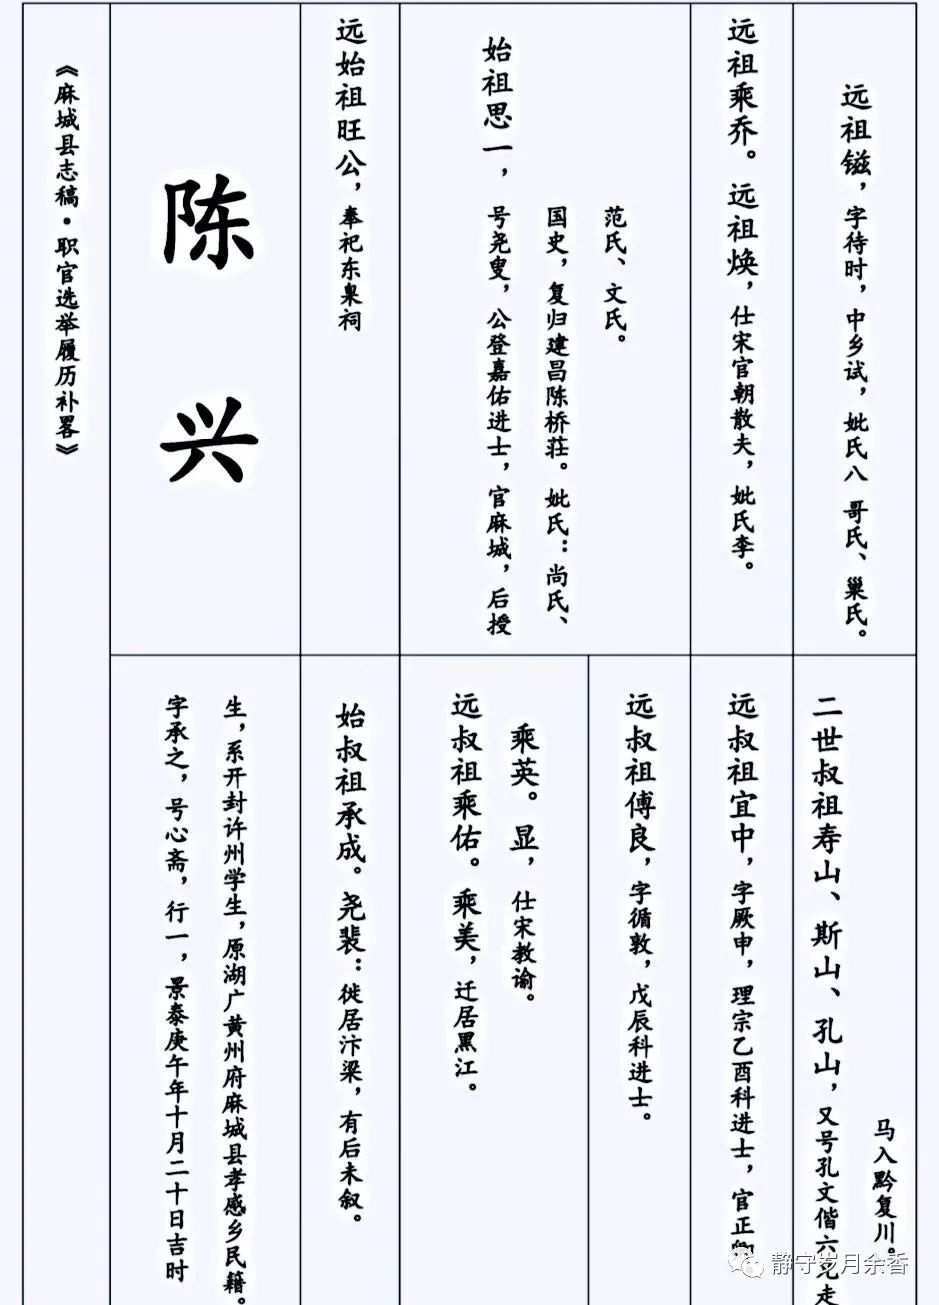 《麻城县志稿·职官选举履历补畧》
陈兴
远始祖旺公，奉祀东臬祠
始祖思一，号尧叟，公登嘉佑进士，官麻城，后授
国史，复归建昌陈桥莊。妣氏：尚氏、
范氏、文氏。
远祖乘乔。远祖焕，仕宋官朝散夫，妣氏李。
远祖镃，字待时，中乡试，妣氏八哥氏、巢氏。
字承之，号心斋，行一，景泰庚午年十月二十日吉时
生，系开封许州学生，原湖广黄州府麻城县孝感乡民籍。
始叔祖承成。尧裴：徙居汴梁，有后未叙。
远叔祖乘佑。乘美，迁居黑江。
乘英。显，仕宋教谕。
远叔祖傅良，字循敦，戊辰科进士。
远叔祖宜中，字厥申，理宗乙酉科进士，官正
二世叔祖寿山、斯山、孔山，又号孔文偕六兄走
马入黔复川。
静守岁月余香